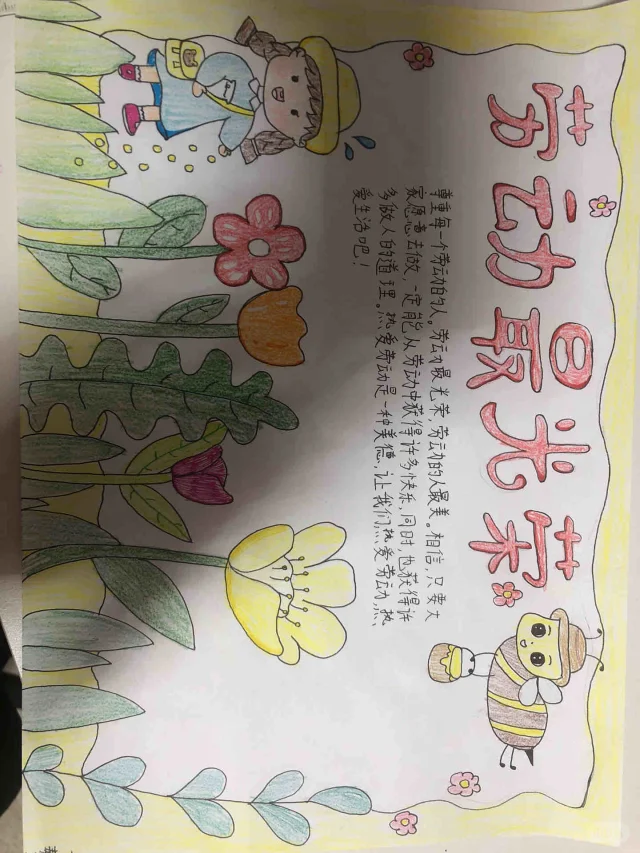 劳动最光荣
尊重每一个劳动的人。劳动最光荣,劳动的人最美。相信,只要大
家愿意去做,一定能从劳动中获得许多快乐,同时也获得许
多做人的道理。热爱劳动是一种美德,让我们热爱劳动,热
爱生活吧!